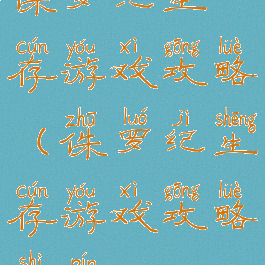 cún yóu xì gōng lüè
存游戏攻略
zhū luó jì shēng
(侏罗纪生
cún yóu xì gōng lüè
存游戏攻略
shì pín